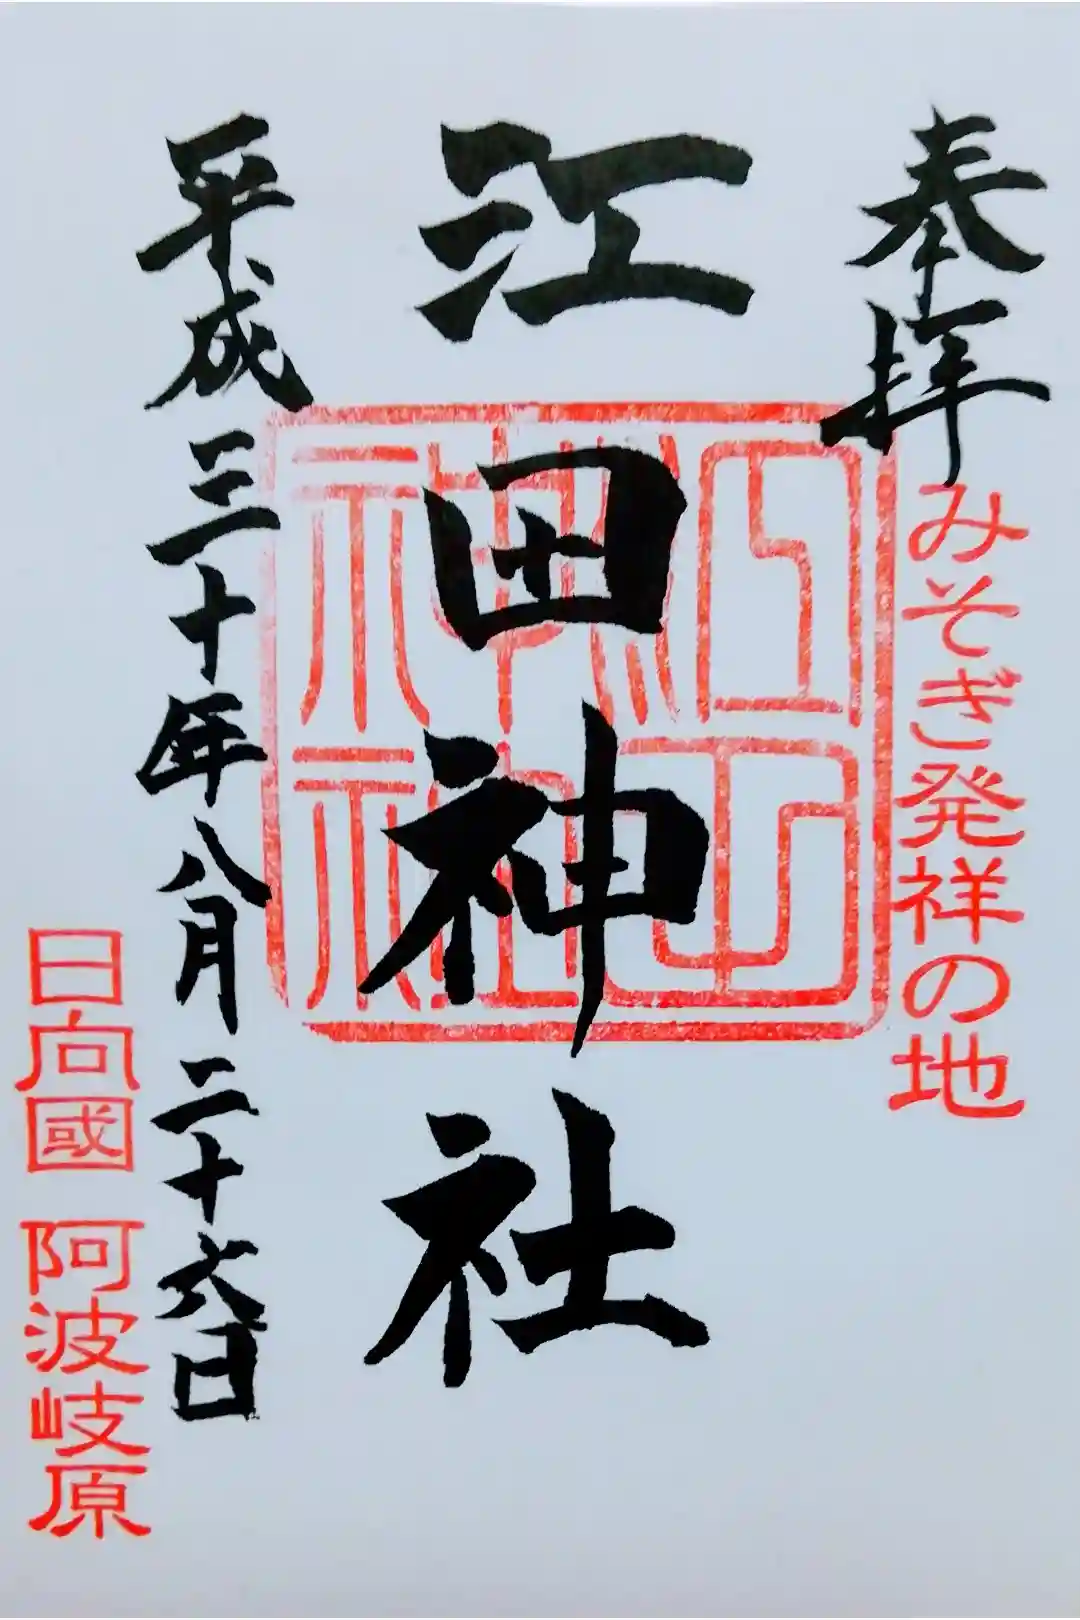 奉拝
みそぎ発祥の地
江田神社
江田神社
平成三十年八月二十六日
日向國 阿波岐原